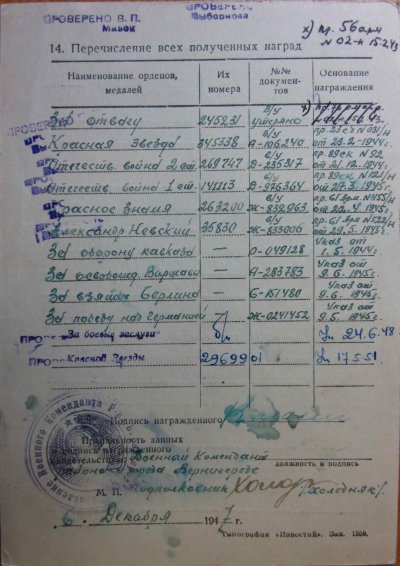 ПРОВЕРЕНО В. П.
Мазок
ПРОВЕРЕНО
Выборнова
х) пр. 56 арм
N 02-н 15.2.43
14. Перечисление всех полученных наград
Наименование орденов, медалей
Их номера
№№ документов
Основание награждения
За отвагу 2459231 в/у утеряно
Красная Звезда 345338 в/у А-106249 23.2.1944г.
Отечеств. война 2 ст. 269747 в/у В-235317 пр. 89ск N 92 от 21.12.1944г.
Отечеств. война 1 ст. 141113 в/у В-976364 пр. 89ск от 27.3.1945г.
Красное Знамя 263200 в/у Ж-832963 пр. 61 Арм. от 22.4.1945г.
Александр Невский 35830 в/у Ж-833006 пр. 61 Арм. от 29.5.1945г.
За оборону кавказа — О-049128 Указ от 1.5.1944г.
За освобожд. Варшавы — А-283783 Указ от 9.6.1945г.
За взятие Берлина — Б-151480 Указ от 9.6.1945г.
За победу над Германией — Ж-0241452 Указ от 9.5.1945г.
За боевые заслуги б/н Ук 24.6.48
Красной Звезды 2969901 Ук 17.5.51
Подпись награжденного
Правильность данных
и подпись награжденного
свидетельствую Военный Комендант
района и города Вернигероде
должность и подпись
М. П. Подполковник Холод /Холодняк/.
6 Декабря 1947 г.
Типография «Известий». Зак. 1559.